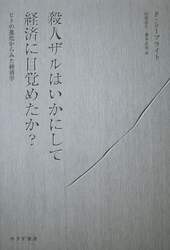 殺人ザルはいかにして
経済に目覚めたか?
ヒトの進化からみた経済学
P・シーブライト
山形浩生・森本正史訳
みすず書房